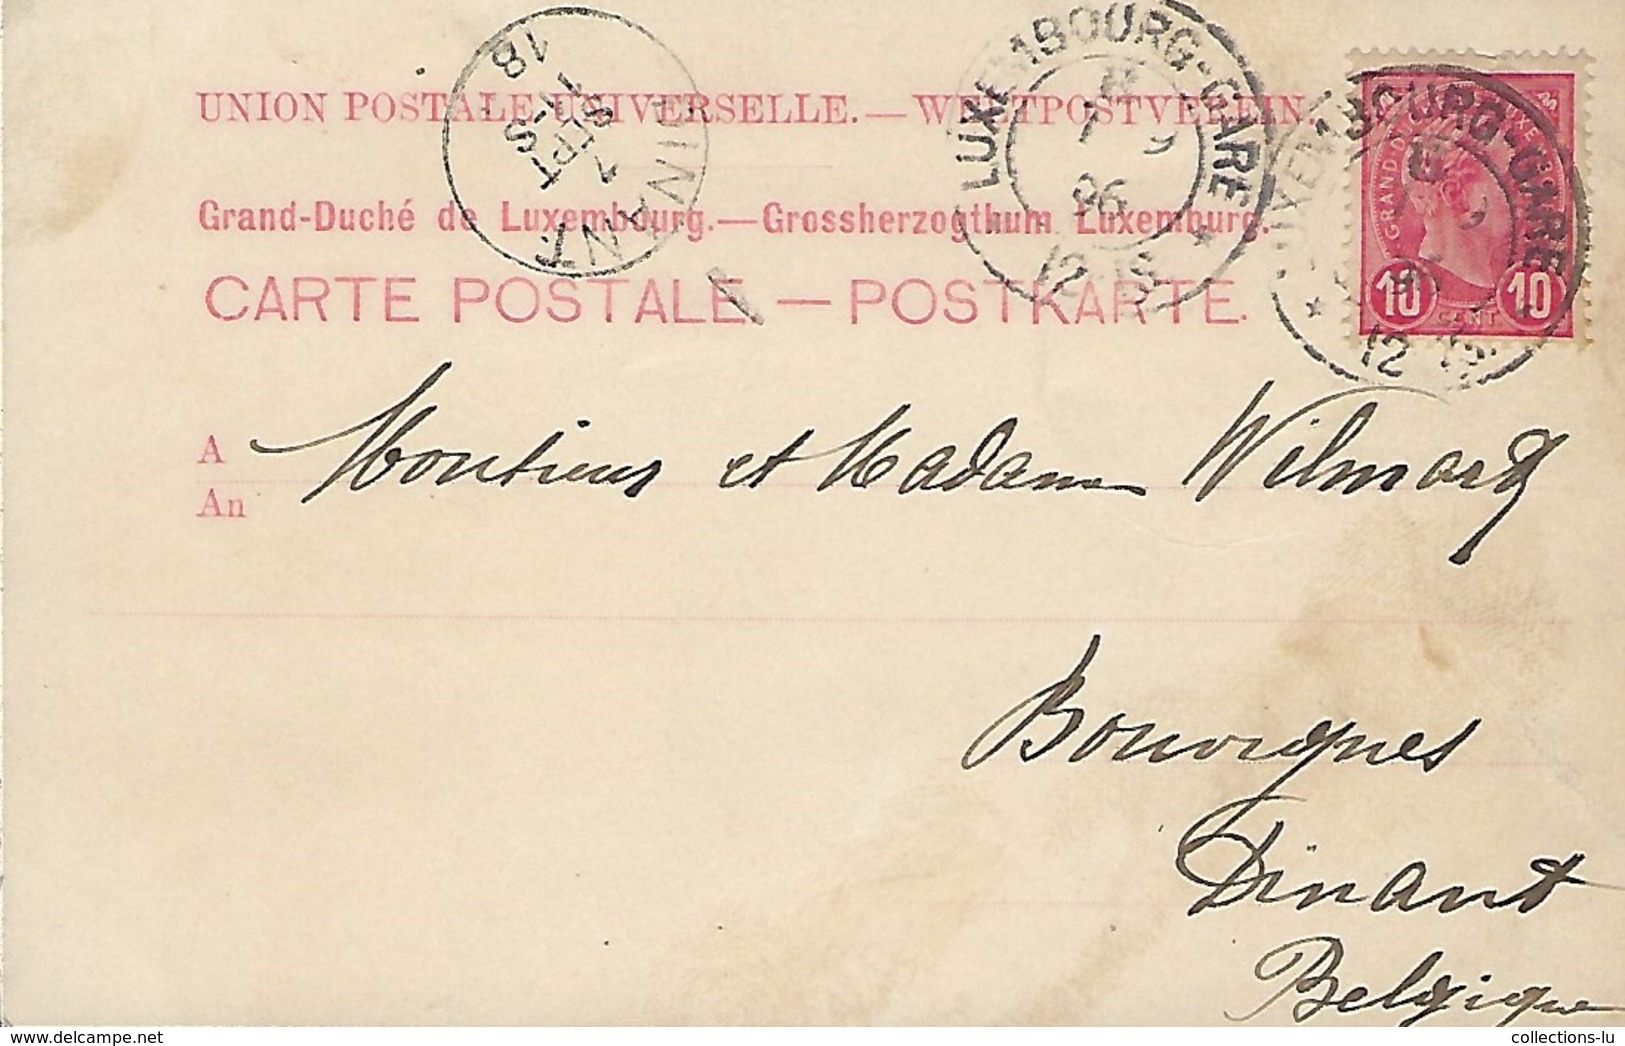 UNION POSTALE UNIVERSELLE.—WELTPOSTVEREIN.
Grand-Duché de Luxembourg.—Grossherzogthum Luxemburg.
CARTE POSTALE — POSTKARTE.
DINANT
1
SEPT
11-S
18
LUXEMBOURG-GARE
1 9
96
12-1S
LUXEMBOURG-GARE
12
10 CENT. 10
A Monsieur et Madame Wilmard
An
Bouvignes
Dinant
Belgique
delcampe.net
collections-lu